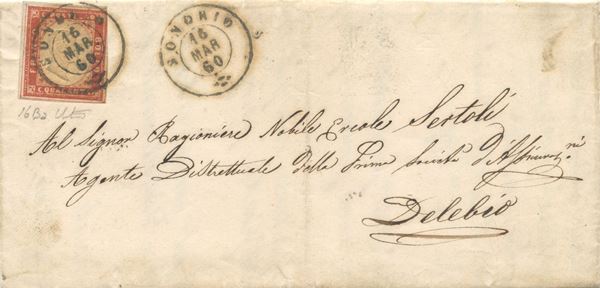 SOND
16
MAR
60
SONDRIO
16
MAR
60
16Ba
Al Signor Ragioniere Nobile Ercole Sertoli
Agente Distrettuale della Prima Società d'Assicuraz.ni
Delebio